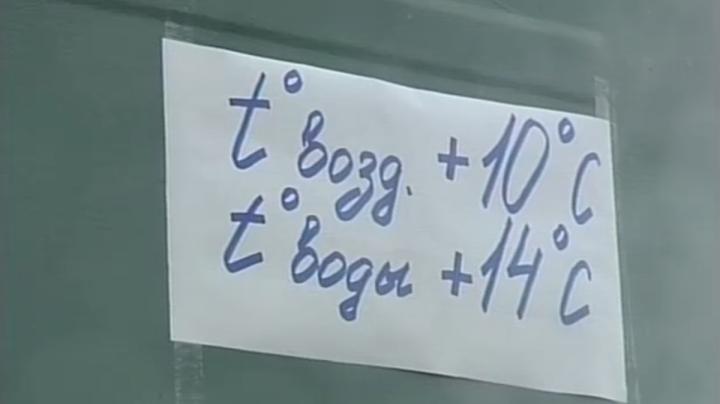 t° возд. +10°C
t° воды +14°C